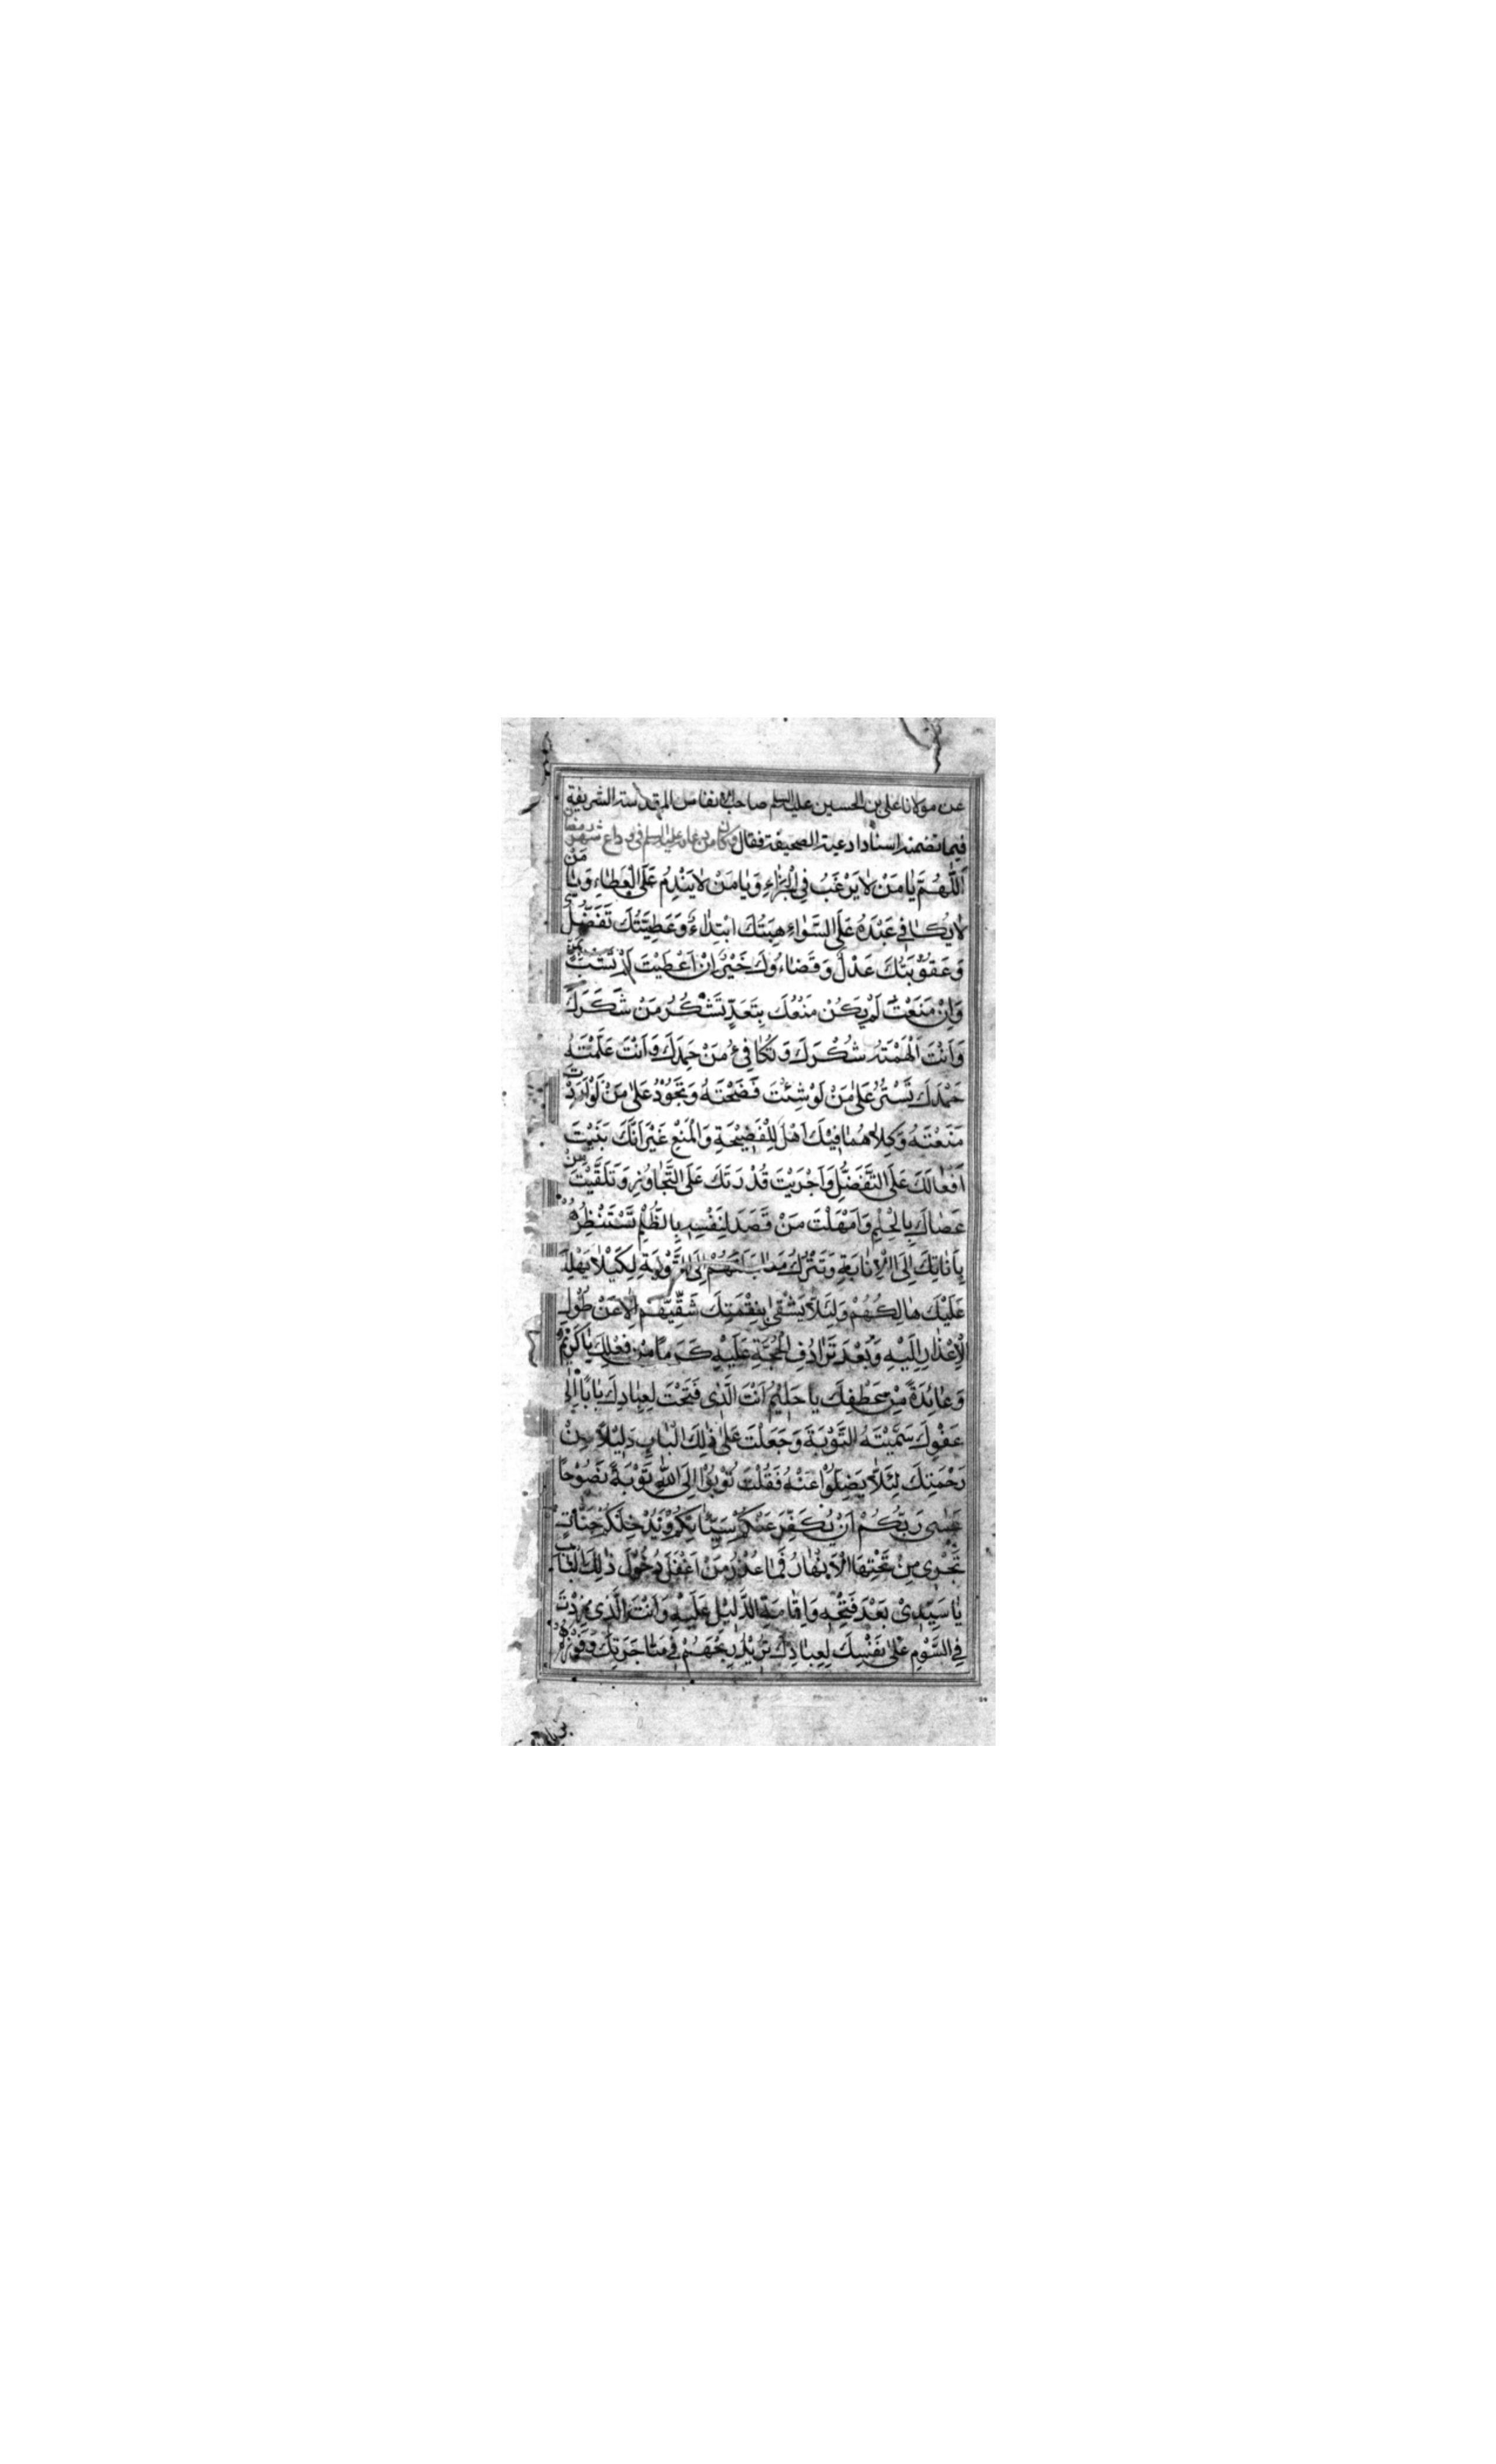 عن مولانا علي بن الحسين عليه السلم صاحب الانفاس المقدسة الشريفة
فيما تضمنه اسناد ادعية الصحيفة فقال وكان من دعائه عليه السلم في وداع شهر رمضان
اَللّٰهُمَّ يَا مَنْ لَا يَرْغَبُ فِي الْجَزَاءِ وَيَا مَنْ لَا يَنْدِمُ عَلَى الْعَطَاءِ وَيَا مَنْ
لَا يُكَافِي عَبْدَهُ عَلَى السَّوَاءِ هِبَتُكَ ابْتِدَاءٌ وَعَطِيَّتُكَ تَفَضُّلٌ
وَعُقُوبَتُكَ عَدْلٌ وَقَضَاءُوكَ خَيْرٌ اِنْ اَعْطَيْتَ لَمْ تَشُبْ بِمَنٍّ
وَاِنْ مَنَعْتَ لَمْ يَكُنْ مَنْعُكَ بِتَعَدٍّ تَشْكُرُ مَنْ شَكَرَكَ
وَاَنْتَ اَلْهَمْتَهُ شُكْرَكَ وَتُكَافِئُ مَنْ حَمِدَكَ وَاَنْتَ عَلَّمْتَهُ
حَمْدَكَ تَسْتُرُ عَلَى مَنْ لَوْ شِئْتَ فَضَحْتَهُ وَتَجُوْدُ عَلَى مَنْ لَوْ اَرَدْتَ
مَنَعْتَهُ وَكِلَاهُمَا فِيْكَ اَهْلٌ لِلْفَضِيْحَةِ وَالْمَنْعِ غَيْرَ اَنَّكَ بَنَيْتَ
اَفْعَالَكَ عَلَى التَّفَضُّلِ وَاَجْرَيْتَ قُدْرَتَكَ عَلَى التَّجَاوُزِ وَتَلَقَّيْتَ مَنْ
عَصَاكَ بِالْحِلْمِ وَاَمْهَلْتَ مَنْ قَصَدَ لِنَفْسِهِ بِالظُّلْمِ تَسْتَنْظِرُهُمْ
بِاَنَاتِكَ اِلَى الْاِنَابَةِ وَتَتْرُكُ مُعَاجَلَتَهُمْ اِلَى التَّوْبَةِ لِكَيْلَا يَهْلِكَ
عَلَيْكَ هَالِكُهُمْ وَلِئَلَّا يَشْقَى بِنِقْمَتِكَ شَقِيُّهُمْ اِلَّا عَنْ طُوْلِ
الْاِعْذَارِ اِلَيْهِ وَبَعْدَ تَرَادُفِ الْحُجَّةِ عَلَيْهِ كَرَمًا مِنْ فِعْلِكَ يَا كَرِيْمُ
وَعَائِدَةً مِنْ عَطْفِكَ يَا حَلِيْمُ اَنْتَ الَّذِي فَتَحْتَ لِعِبَادِكَ بَابًا اِلَى
عَفْوِكَ سَمَّيْتَهُ التَّوْبَةَ وَجَعَلْتَ عَلَى ذٰلِكَ الْبَابِ دَلِيْلًا مِنْ
رَحْمَتِكَ لِئَلَّا يَضِلُّوْا عَنْهُ فَقُلْتَ تُوْبُوْا اِلَى اللّٰهِ تَوْبَةً نَصُوْحًا
عَسٰى رَبُّكُمْ اَنْ يُكَفِّرَ عَنْكُمْ سَيِّئَاتِكُمْ وَيُدْخِلَكُمْ جَنَّاتٍ
تَجْرِي مِنْ تَحْتِهَا الْاَنْهَارُ فَمَا عُذْرُ مَنْ اَغْفَلَ دُخُوْلَ ذٰلِكَ الْبَابِ
يَا سَيِّدِيْ بَعْدَ فَتْحِهِ وَاِقَامَةِ الدَّلِيْلِ عَلَيْهِ وَاَنْتَ الَّذِي زِدْتَ
فِي السَّوْمِ عَلَى نَفْسِكَ لِعِبَادِكَ تُرِيْدُ رِبْحَهُمْ فِي مُتَاجَرَتِكَ وَفَوْزَهُمْ